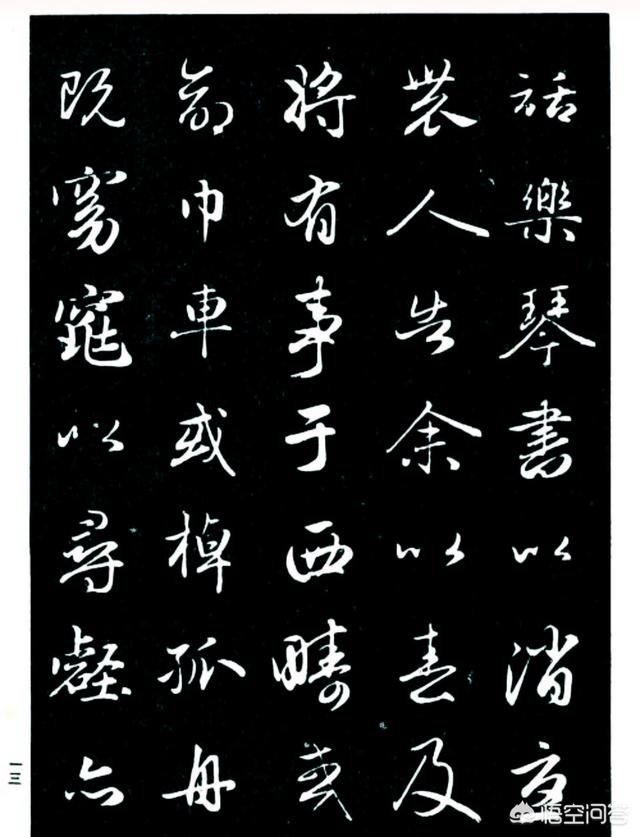 話樂琴書以消憂
農人告余以春及
将有事于西疇或
命巾車或棹孤舟
既窈窕以尋壑亦
一三
悟空问答